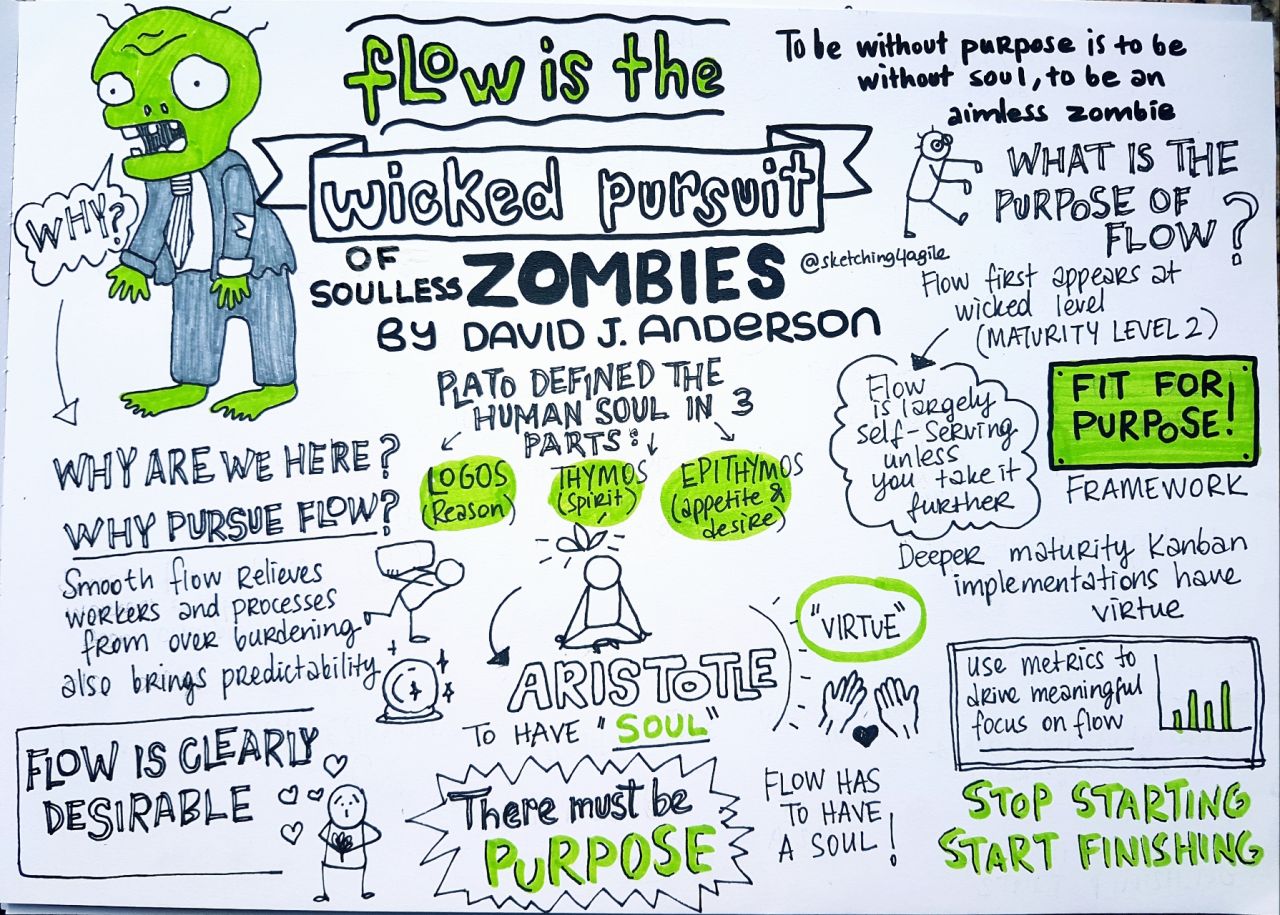 fLow is the
wicked pursuit
OF
SOULLESS ZOMBIES
BY DAVID J. AnDERSON
@sketching4agile
WHY?
WHY ARE WE HERE?
WHY PURSUE FLOW?
Smooth flow RELIEVES
WORKERS and PROCESSES
from over burdening
also brings predictability
FLOW IS CLEARLY
DESIRABLE
PLATO DEFINED THE
HUMAN SOUL IN 3
PARTS:
LOGOS
(Reason)
THYMOS
(Spirit)
EPITHYMOS
(appetite &
desire)
ARISTOTLE
TO HAVE "SOUL"
There must be
PURPOSE
"VIRTUE"
FLOW HAS
TO HAVE
A SOUL!
To be without purpose is to be
without soul, to be an
aimless zombie
WHAT IS THE
PURPOSE OF
FLOW?
Flow first appears at
wicked level
(MATURITY LEVEL 2)
Flow
is largely
self-serving
unless
you take it
further
FIT FOR
PURPOSE!
FRAMEWORK
Deeper maturity Kanban
implementations have
virtue
use metrics to
drive meaningful
focus on flow
STOP STARTING
START FINISHING